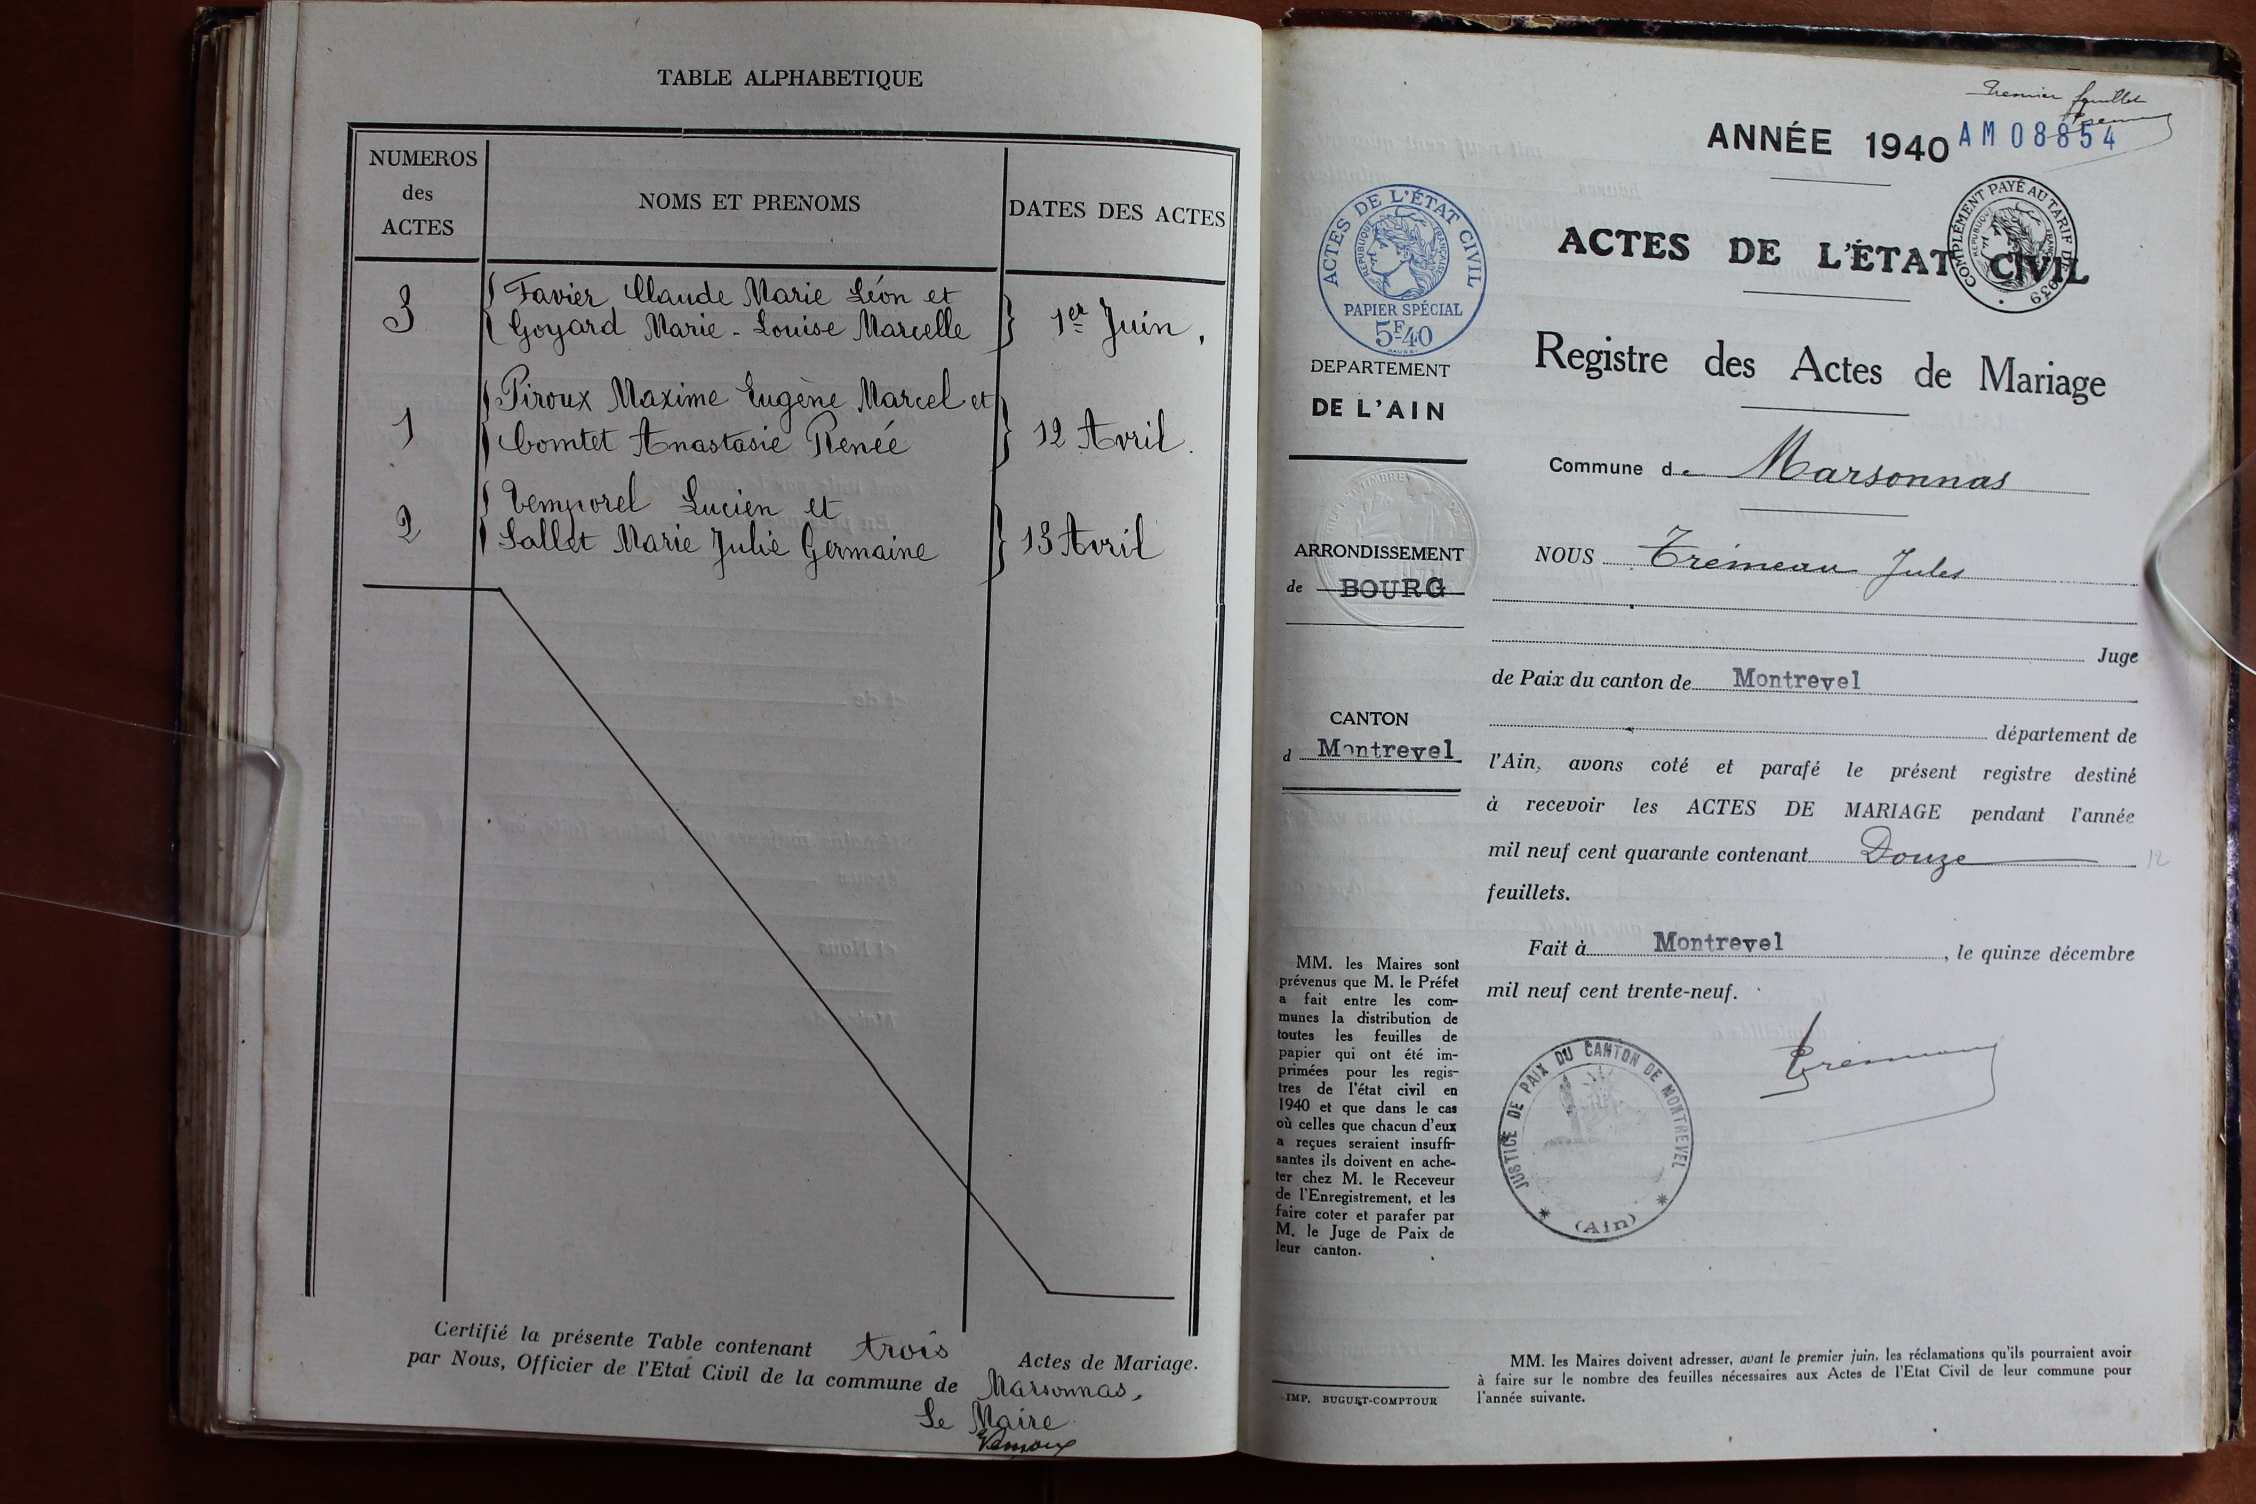 TABLE ALPHABETIQUE
NUMEROS
des
ACTES
NOMS ET PRENOMS
DATES DES ACTES
3
Favier Claude Marie Léon et
Goyard Marie-Louise Marcelle
1er Juin,
1
Piroux Maxime Eugène Marcel et
Comtet Anastasie Renée
12 Avril.
2
Temporel Lucien et
Sallet Marie Julie Germaine
13 Avril
Certifié la présente Table contenant trois Actes de Mariage.
par Nous, Officier de l'Etat Civil de la commune de Marsonnas,
Le Maire
Premier feuillet
ANNÉE 1940
AM 08854
ACTES DE L'ÉTAT CIVIL
PAPIER SPÉCIAL
5F.40
RÉPUBLIQUE FRANÇAISE
COMPLÉMENT PAYÉ AU TARIF DE 1939
RÉPUBLIQUE FRANÇAISE
ACTES DE L'ÉTAT CIVIL
Registre des Actes de Mariage
DEPARTEMENT
DE L'AIN
Commune de Marsonnas
ARRONDISSEMENT
de BOURG
CANTON
d Montrevel
NOUS Trémeau Jules
Juge
de Paix du canton de Montrevel
département de
l'Ain, avons coté et parafé le présent registre destiné
à recevoir les ACTES DE MARIAGE pendant l'année
mil neuf cent quarante contenant Douze
12
feuillets.
Fait à Montrevel, le quinze décembre
mil neuf cent trente-neuf.
Trémeau
JUSTICE DE PAIX DU CANTON DE MONTREVEL
* (Ain) *
MM. les Maires sont
prévenus que M. le Préfet
a fait entre les com-
munes la distribution de
toutes les feuilles de
papier qui ont été im-
primées pour les regis-
tres de l'état civil en
1940 et que dans le cas
où celles que chacun d'eux
a reçues seraient insuffi-
santes ils doivent en ache-
ter chez M. le Receveur
de l'Enregistrement, et les
faire coter et parafer par
M. le Juge de Paix de
leur canton.
IMP. BUGUET-COMPTOUR
MM. les Maires doivent adresser, avant le premier juin, les réclamations qu'ils pourraient avoir
à faire sur le nombre des feuilles nécessaires aux Actes de l'Etat Civil de leur commune pour
l'année suivante.